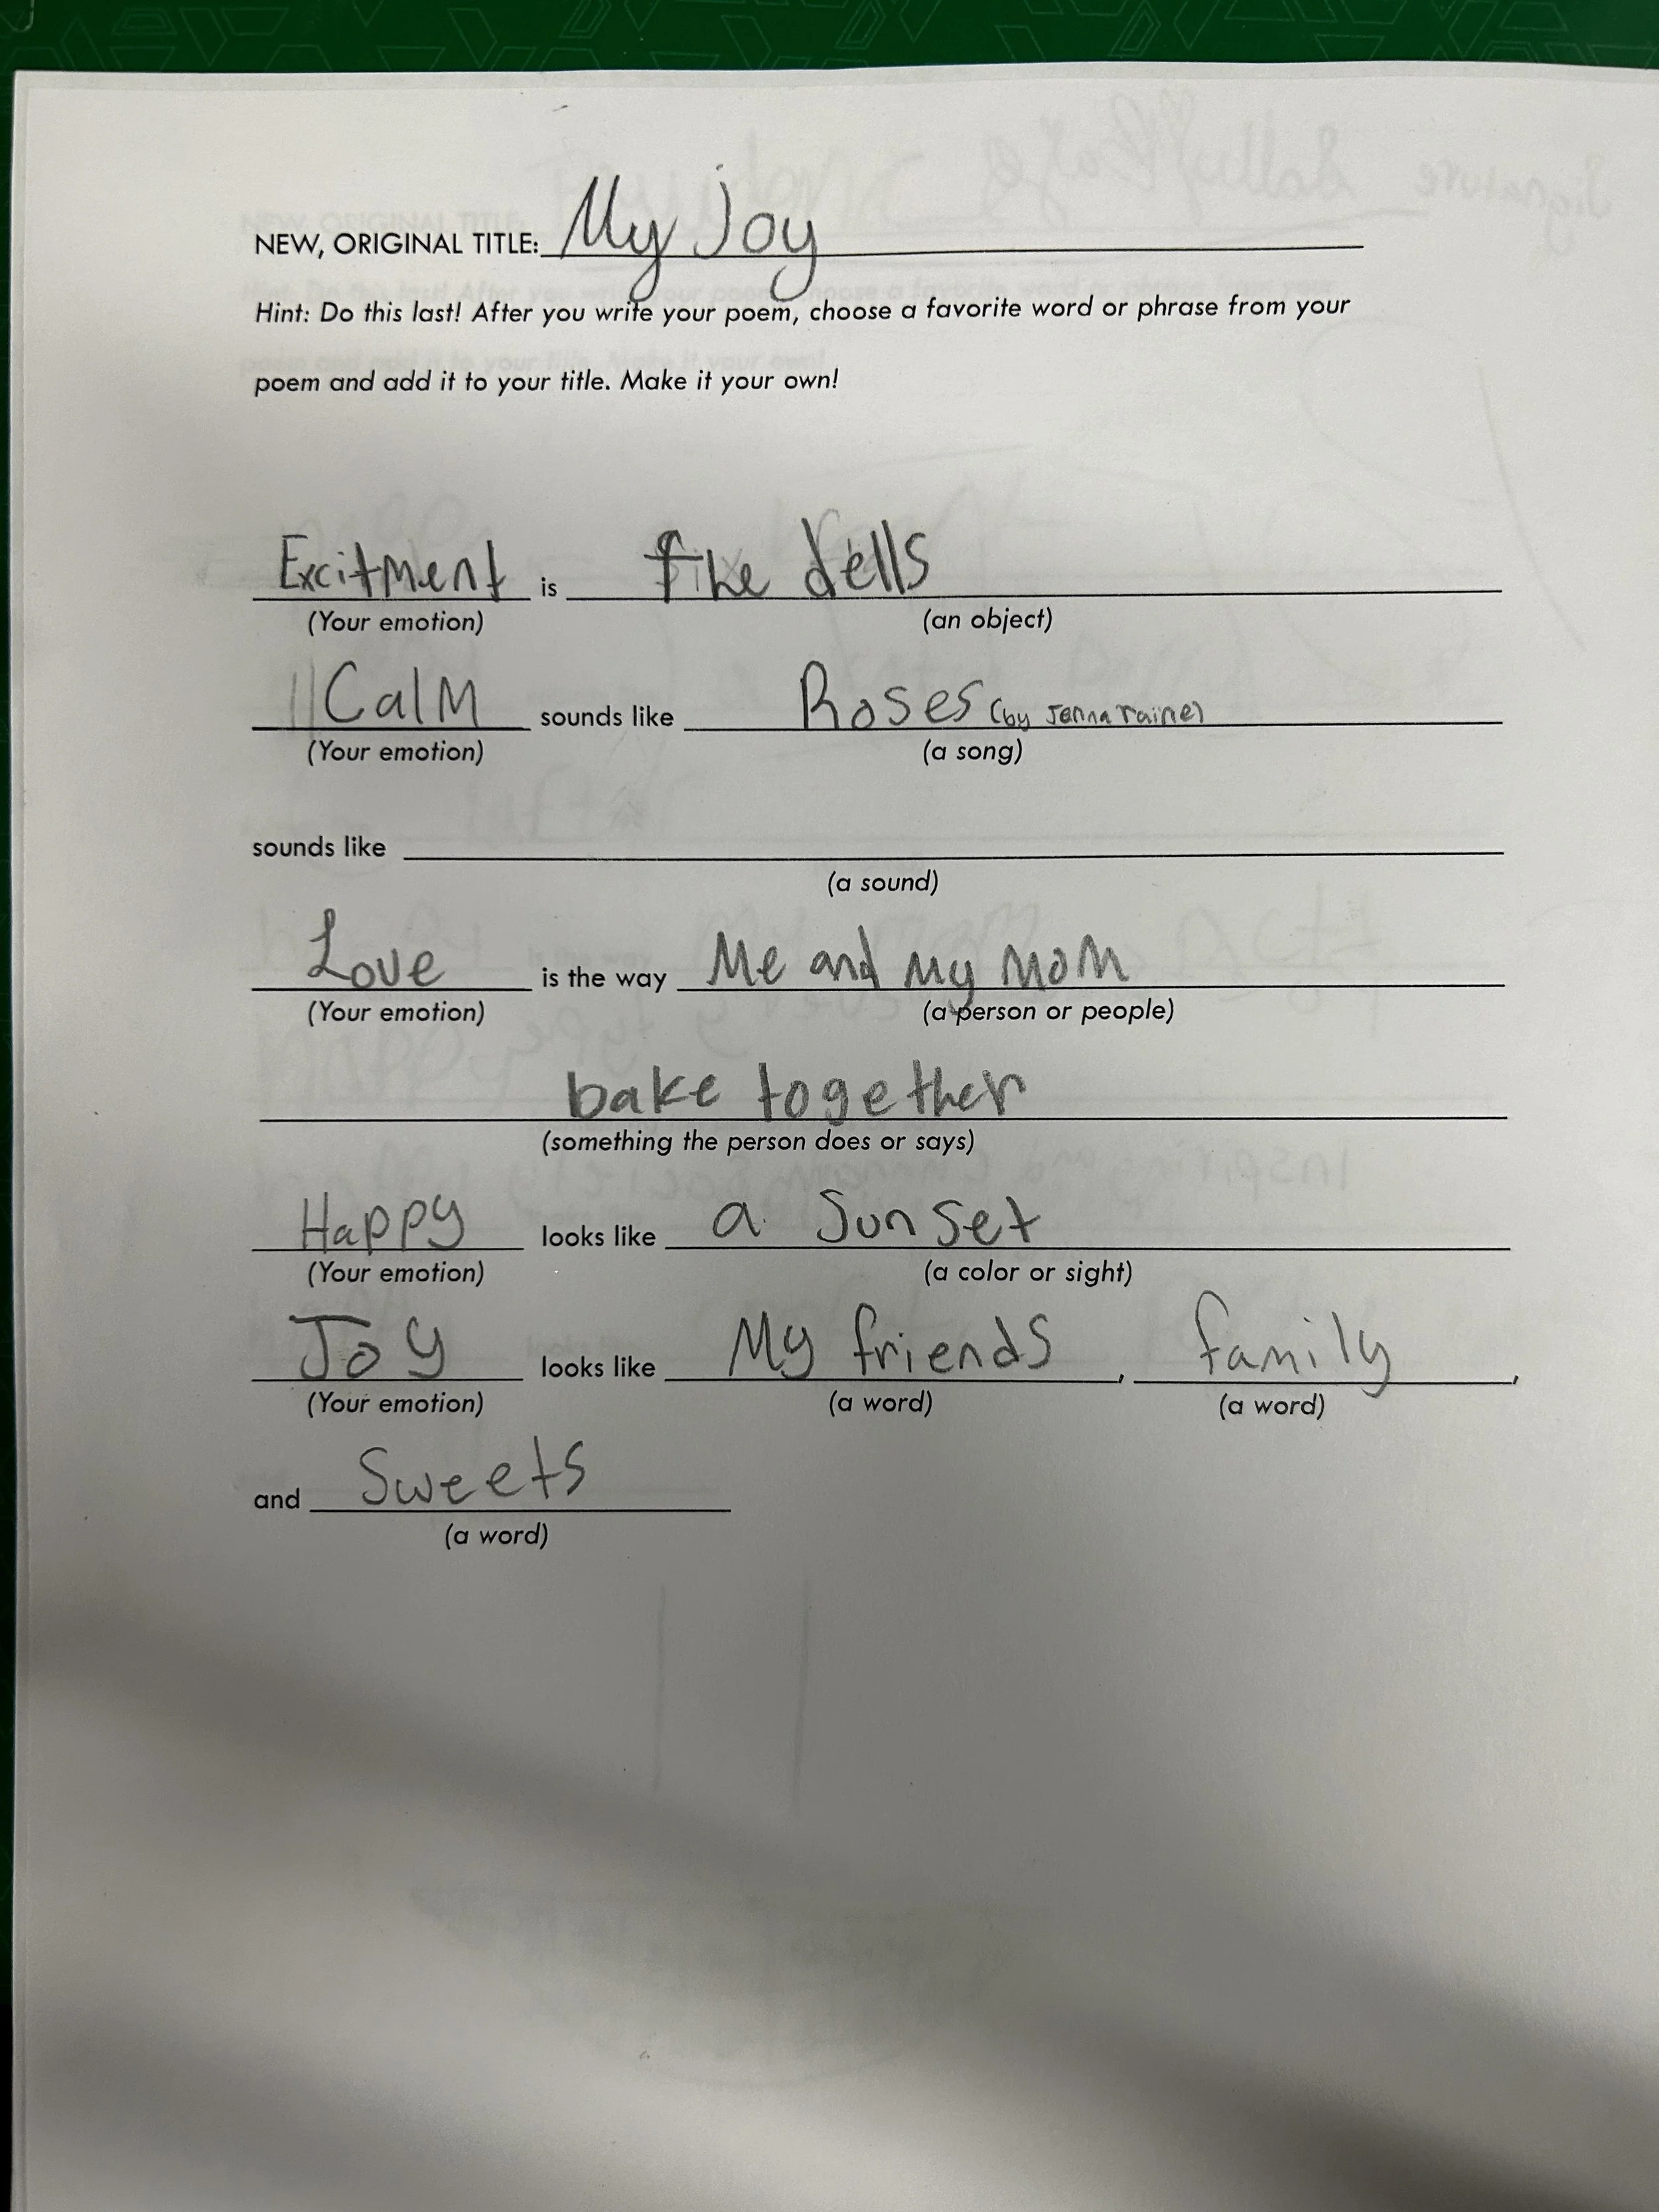 NEW, ORIGINAL TITLE: My Joy
Hint: Do this last! After you write your poem, choose a favorite word or phrase from your
poem and add it to your title. Make it your own!
Excitment is The dells
(Your emotion) (an object)
Calm sounds like Roses (by Jenna raine)
(Your emotion) (a song)
sounds like
(a sound)
Love is the way Me and My Mom
(Your emotion) (a person or people)
bake together
(something the person does or says)
Happy looks like a Sunset
(Your emotion) (a color or sight)
Joy looks like My friends, family,
(Your emotion) (a word) (a word)
and Sweets
(a word)